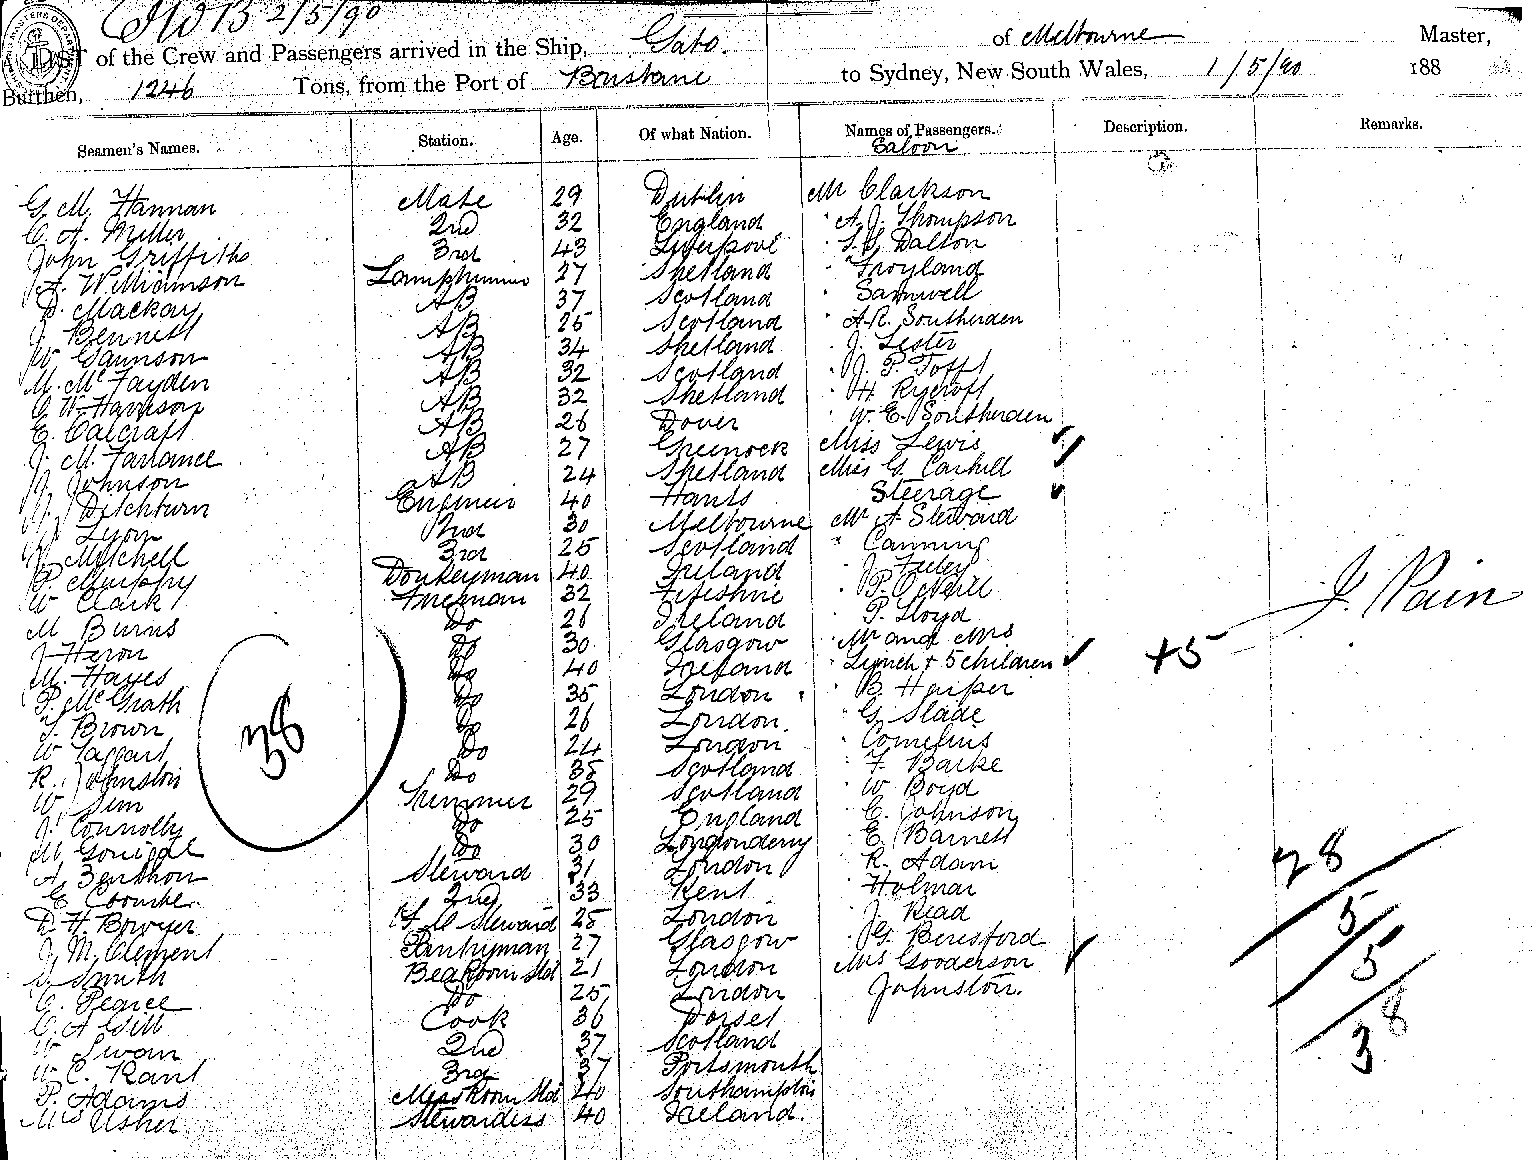 2/5/90
LIST of the Crew and Passengers arrived in the Ship, Gabo. of Melbourne Master,
Burthen, 1246 Tons, from the Port of Brisbane to Sydney, New South Wales, 1/5/90 188
Seamen's Names. Station. Age. Of what Nation. Names of Passengers. Description. Remarks.
Saloon
G. M. Hannan Mate 29 Dublin Mr Clarkson
C. A. Miller 2nd 32 England " A. J. Thompson
John Griffiths 3rd 43 Liverpool " Dalton
A. Williamson Lamptrimmer 27 Shetland " Froyland
D. Mackay AB 37 Scotland " Samwell
J. Bennett AB 25 Scotland " A. R. Southerden
W. AB 34 Shetland " J. Lester
M. McFayden AB 32 Scotland " J. P. Toft
C. W. Harrison AB 32 Shetland " H. Rycroft
E. Calcraft AB 26 Dover " W. E. Southerden
J. M. Farrance AB 27 Greenock Miss Lewis
J. Johnson AB 24 Shetland Miss G. Carhill
Ditchburn Engineer 40 Hants Steerage
Lyon 2nd 30 Melbourne Mr A Steward
Mitchell 3rd 25 Scotland " Canning
P. Murphy Donkeyman 40 Ireland
W Clark Fireman 32 Fifeshire P. O'Neill
M Burns Do 26 Ireland " P. Lloyd
J. Heron Do 30 Glasgow " Mr and Mrs
M. Hayes Do 40 Ireland " Lynch + 5 children +5
P. McGrath Do 35 London " B. Harper
T. Brown Do 26 London " G. Slade
W Taggart Do 24 London " Cornelius
R. Johnston Do 35 Scotland " F. Barke
W Sim Trimmer 29 Scotland " W Boyd
J. Connolly Do 25 England " C. Johnson
M. Gonigal Do 30 Londonderry " E. Barnett
A. Steward 31 London " R. Adam
E. Coombe 2nd 33 Kent " Holmar
D. H. Bowyer Steward 25 London " J. Read
J. M. Clement Pantryman 27 Glasgow " G. Beresford
S. Smith Bedroom Std 21 London Mrs Gooderson
E. Pearce Do 25 London Johnston.
C. A Gill Cook 36 Dorset
W Swan 2nd 37 Scotland
W. C. Kant 3rd 37 Portsmouth
P. Adams Messroom Std 40 Southampton
Mrs Usher Stewardess 40 Ireland.
38
J. Pain
28
5
5
38